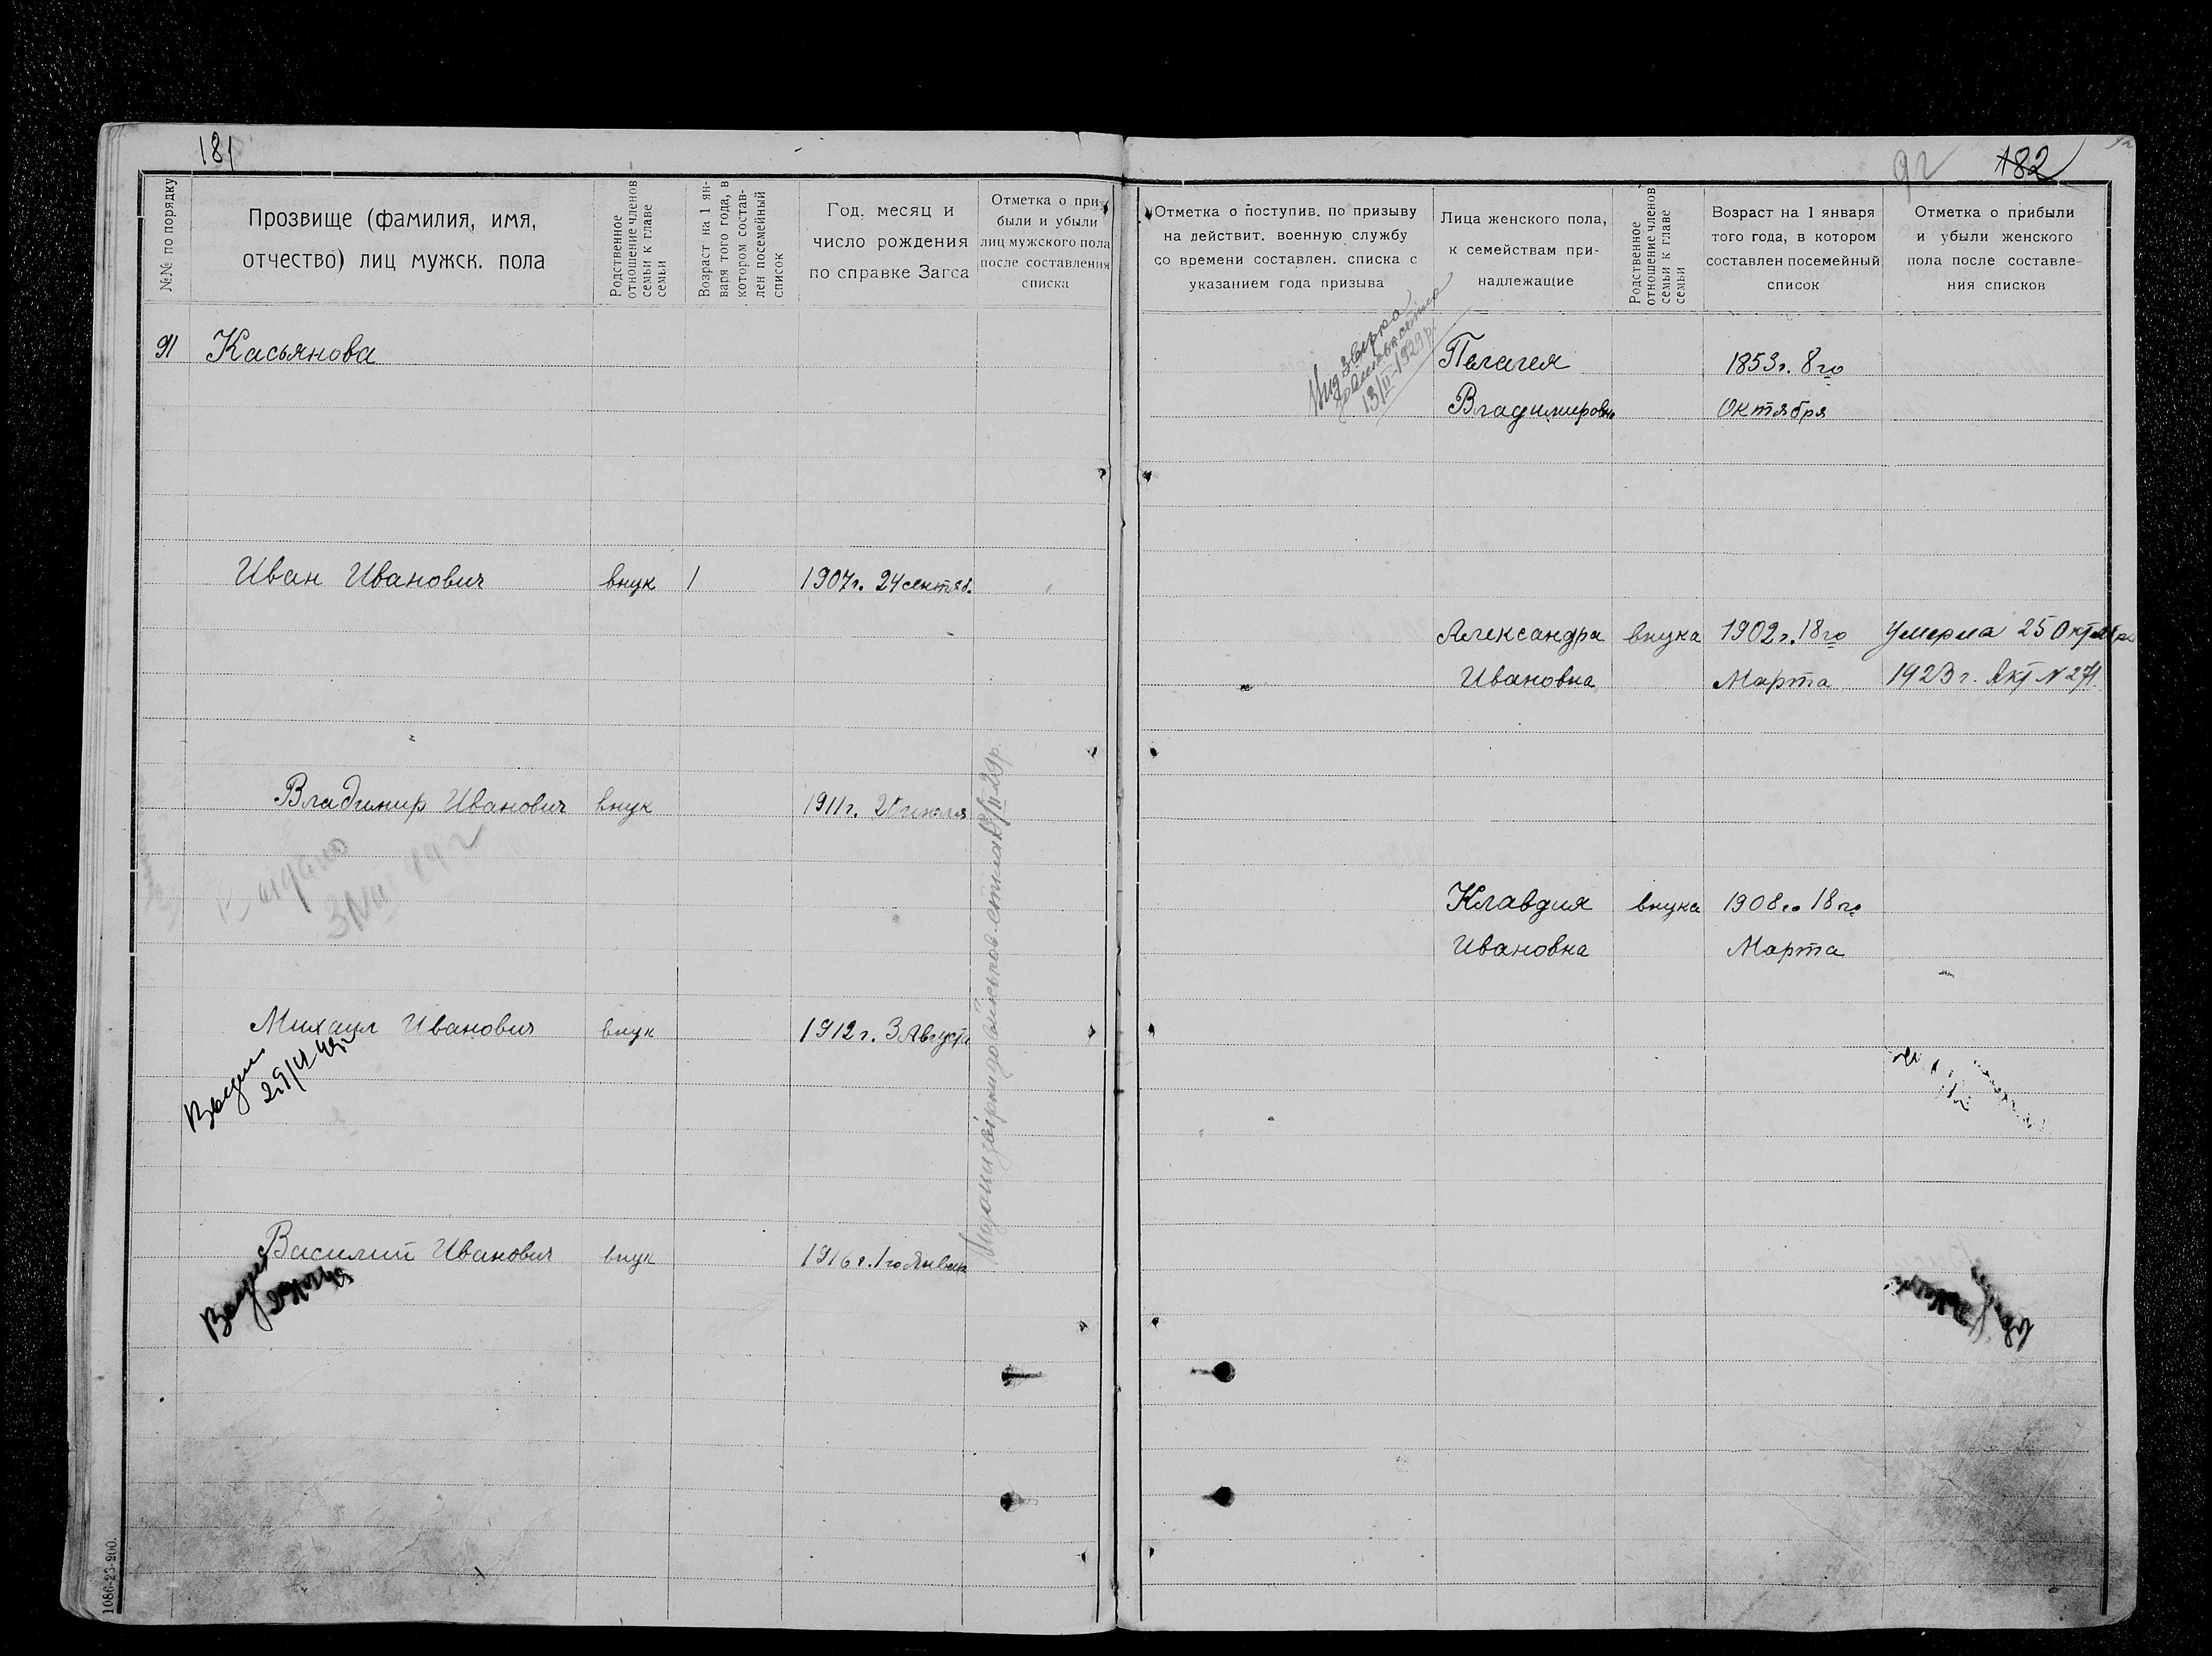 181
№№ по порядку
Прозвище (фамилия, имя,
отчество) лиц мужск. пола
Родственное
отношение членов
семьи к главе
семьи
Возраст на 1 ян-
варя того года, в
котором состав-
лен посемейный
список
Год, месяц и
число рождения
по справке Загса
Отметка о при-
были и убыли
лиц мужского пола
после составления
списка
91 Касьянова
Иван Иванович внук 1 1907г. 24 сентяб.
Владимир Иванович внук 1911г.
Выдано
Михаил Иванович внук 1912г. 3 Августа
Василий Иванович внук 1916г. 1го Января
1086-23-200.
92 182
Отметка о поступив. по призыву
на действит. военную службу
со времени составлен. списка с
указанием года призыва
Лица женского пола,
к семействам при-
надлежащие
Родственное
отношение членов
семьи к главе
семьи
Возраст на 1 января
того года, в котором
составлен посемейный
список
Отметка о прибыли
и убыли женского
пола после составле-
ния списков
13/II-1929р.
Пелагея 1853г. 8го
Владимировна Октября
Александра внука 1902г. 18го Умерла 25 Октября
Ивановна Марта 1923г. Акт N 271.
Клавдия внука 1908г. 18го
Ивановна Марта